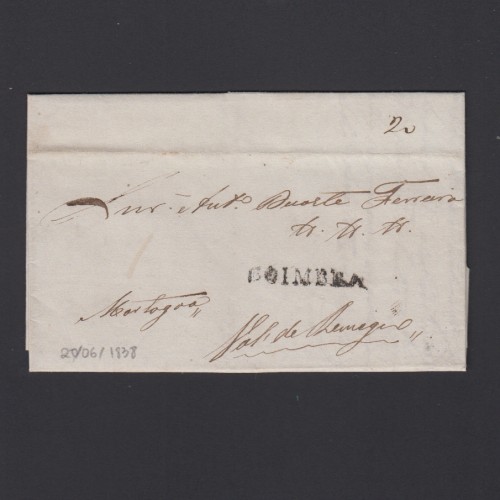 2
Snr. Anto. Duarte Ferreira
COIMBRA
Mortagoa
Val de Remigio
20/06/1838